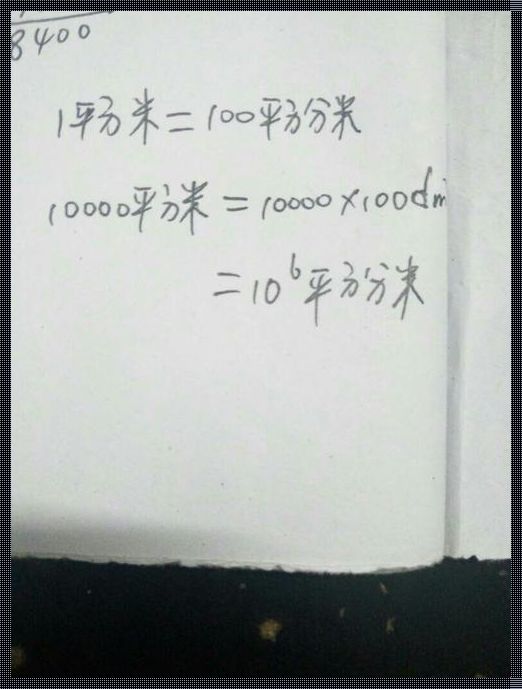 8400
1平方米=100平方分米
10000平方米=10000×100dm
=10⁶平方分米